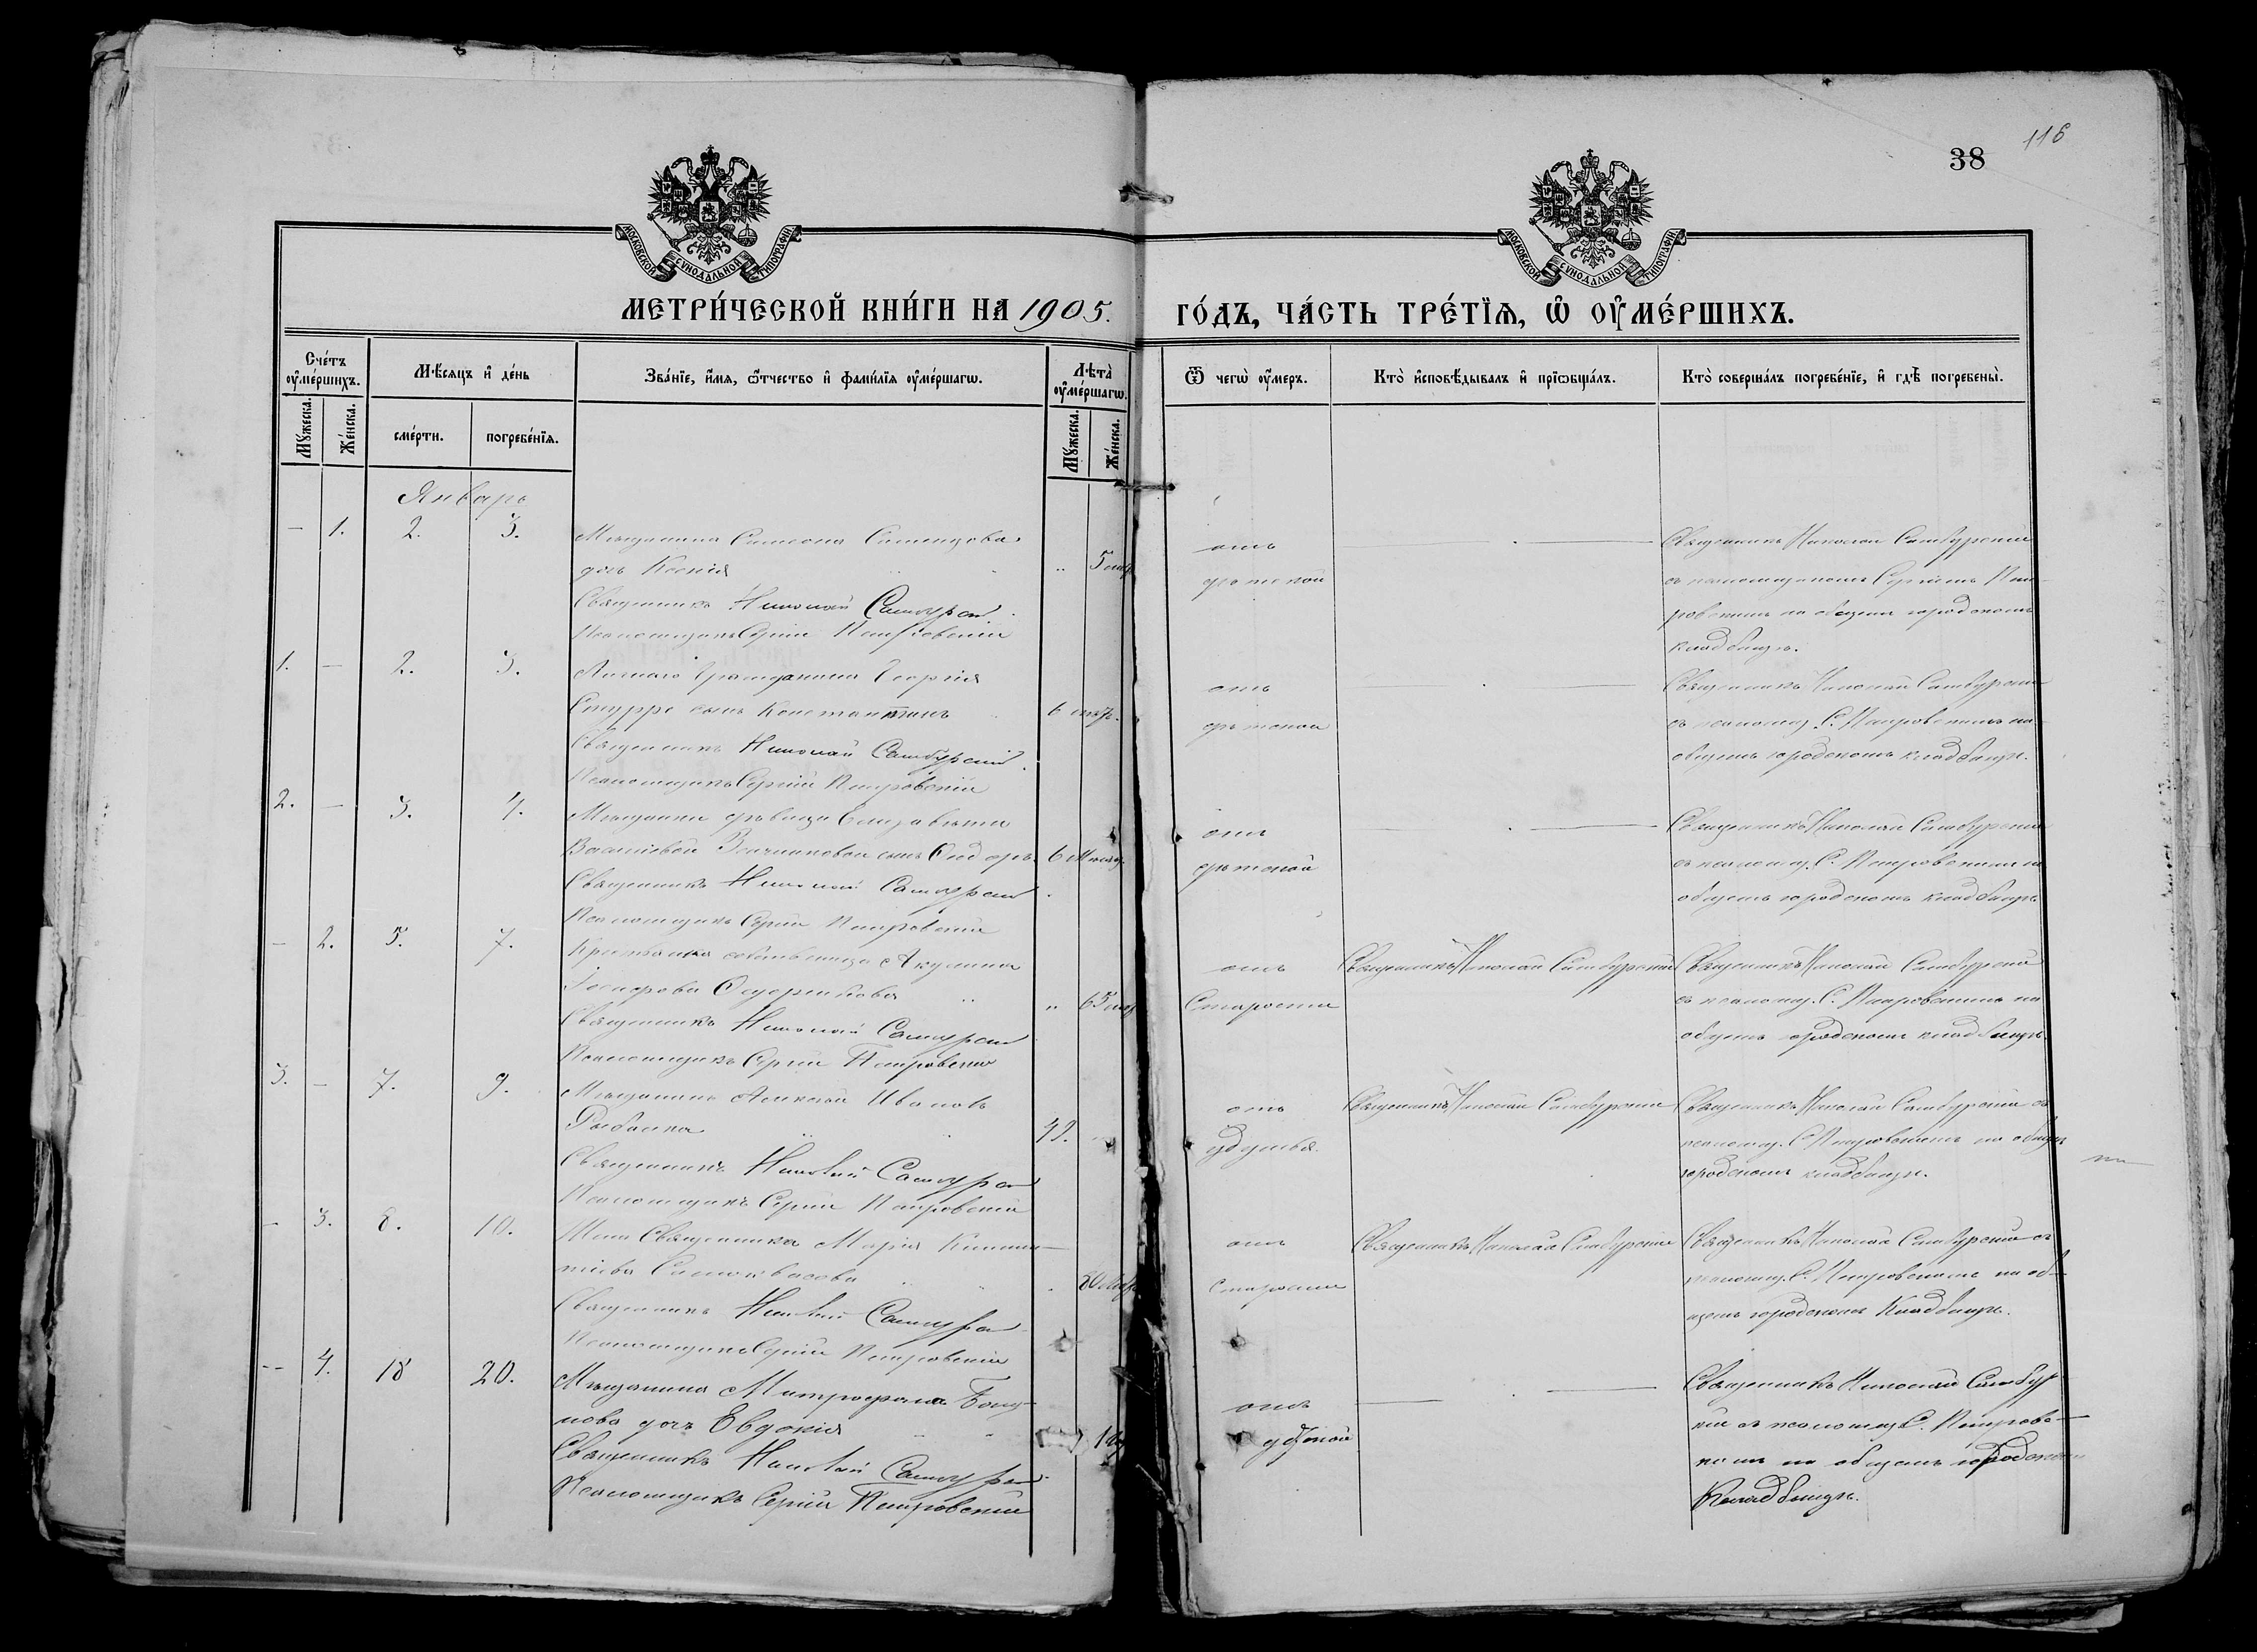 116
38
МОСКОВСКОЙ СѴНОДАЛЬНОЙ ТИПОГРАФІИ
МОСКОВСКОЙ СѴНОДАЛЬНОЙ ТИПОГРАФІИ
МЕТРИ́ЧЕСКОЙ КНИ́ГИ НА 1905. ГО́ДЪ, ЧА́СТЬ ТРЕ́ТЇѦ, Ѡ҆ ОУ҆МЕ́РШИХЪ.
Сче́тъ оу҆ме́ршихъ.
Мѣ́сѧцъ и҆ де́нь
Зва́нїе, и҆́мѧ, ѻ҆́тчество и҆ фами́лїѧ оу҆ме́ршагѡ.
Лѣ̀та оу҆ме́ршагѡ.
Ѿ чегѡ̀ оу҆́меръ.
Кто̀ и҆сповѣ́дывалъ и҆ прїѡбща́лъ.
Кто̀ соверша́лъ погребе́нїе, и҆ гдѣ̀ погребены̀.
Мꙋ́жеска.
Же́нска.
сме́рти.
погребе́нїѧ.
Мꙋ́жеска.
Же́нска.
Январь
— 1. 2. 3. Мѣщанина Симеона
дочь Ксенія 5
Священникъ Николай Самбурскій
Псаломщикъ Сергій Петровскій
отъ
дѣтской
Священникъ Николай Самбурскій
съ псаломщикомъ Сергіемъ Пет-
ровскимъ на общемъ городскомъ
кладбищѣ.
1. — 2. 3. Личнаго Гражданина Георгія
сынъ Константинъ 6
Священникъ Николай Самбурскій.
Псаломщикъ Сергій Петровскій
отъ
дѣтской
Священникъ Николай Самбурскій
съ псаломщ. С. Петровскимъ на
общемъ городскомъ кладбищѣ.
2. — 3. 4. Мѣщанки дѣвицы Елизаветы
Васильевой сынъ Ѳеодоръ 6
Священникъ Николай Самбурскій
Псаломщикъ Сергій Петровскій
отъ
дѣтской
Священникъ Николай Самбурскій
съ псаломщ. С. Петровскимъ на
общемъ городскомъ кладбищѣ
— 2. 5. 7. Крестьянка Акулина
„ 65
Священникъ Николай Самбурскій
Псаломщикъ Сергій Петровскій
отъ
Старости
Священникъ Николай Самбурскій
Священникъ Николай Самбурскій
съ псаломщ. С. Петровскимъ на
общемъ городскомъ кладбищѣ.
3. — 7. 9. Мѣщанинъ Алексѣй Ивановъ
Рыбалка
Священникъ Николай Самбурскій
Псаломщикъ Сергій Петровскій
отъ
удушья.
Священникъ Николай Самбурскій
Священникъ Николай Самбурскій съ
псаломщ. С. Петровскимъ на общемъ
городскомъ кладбищѣ.
— 3. 8. 10. Священника Марія
80
Священникъ Николай Самбурскій
Псаломщикъ Сергій Петровскій
отъ
старости
Священникъ Николай Самбурскій
Священникъ Николай Самбурскій съ
псаломщ. С. Петровскимъ на об-
щемъ городскомъ Кладбищѣ.
-- 4. 18 20. Мѣщанина Митрофана
дочь Евдокія
Священникъ Николай Самбурскій
Псаломщикъ Сергій Петровскій
отъ
Священникъ Николай Самбур
кій съ псаломщ. С. Петровс—
кимъ на общемъ городском
Кладбищѣ.